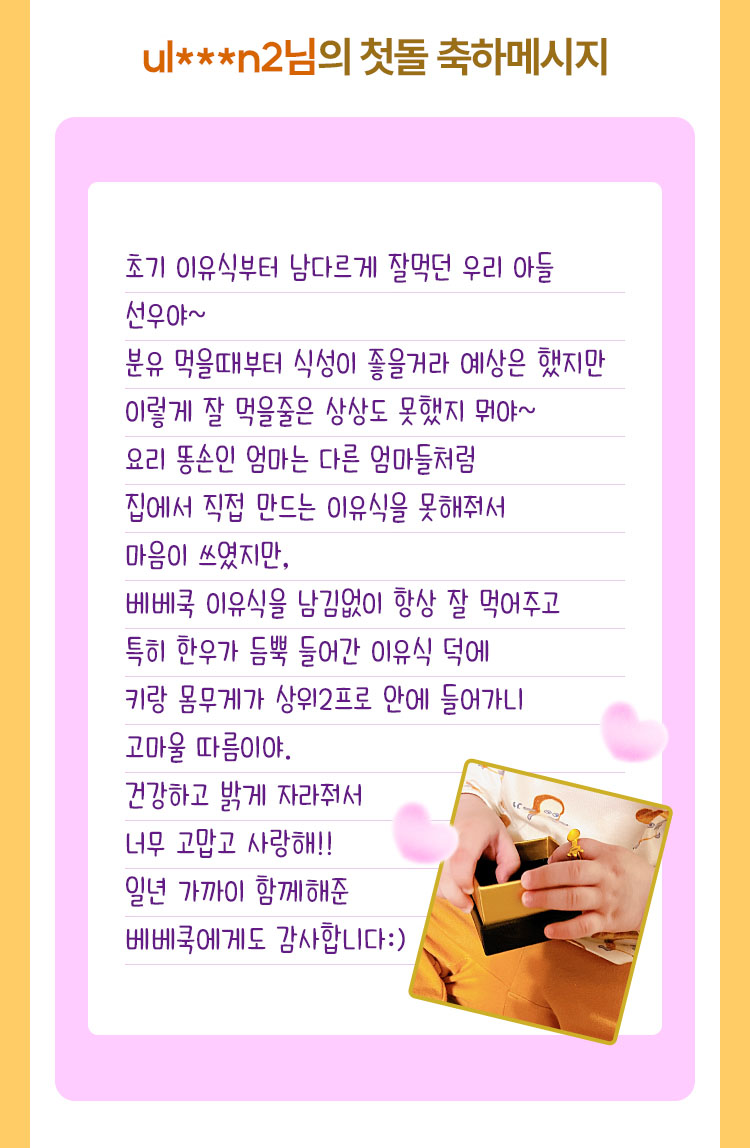 ul***n2님의 첫돌 축하메시지
초기 이유식부터 남다르게 잘먹던 우리 아들
선우야~
분유 먹을때부터 식성이 좋을거라 예상은 했지만
이렇게 잘 먹을줄은 상상도 못했지 뭐야~
요리 똥손인 엄마는 다른 엄마들처럼
집에서 직접 만드는 이유식을 못해줘서
마음이 쓰였지만,
베베쿡 이유식을 남김없이 항상 잘 먹어주고
특히 한우가 듬뿍 들어간 이유식 덕에
키랑 몸무게가 상위2프로 안에 들어가니
고마울 따름이야.
건강하고 밝게 자라줘서
너무 고맙고 사랑해!!
일년 가까이 함께해준
베베쿡에게도 감사합니다:)